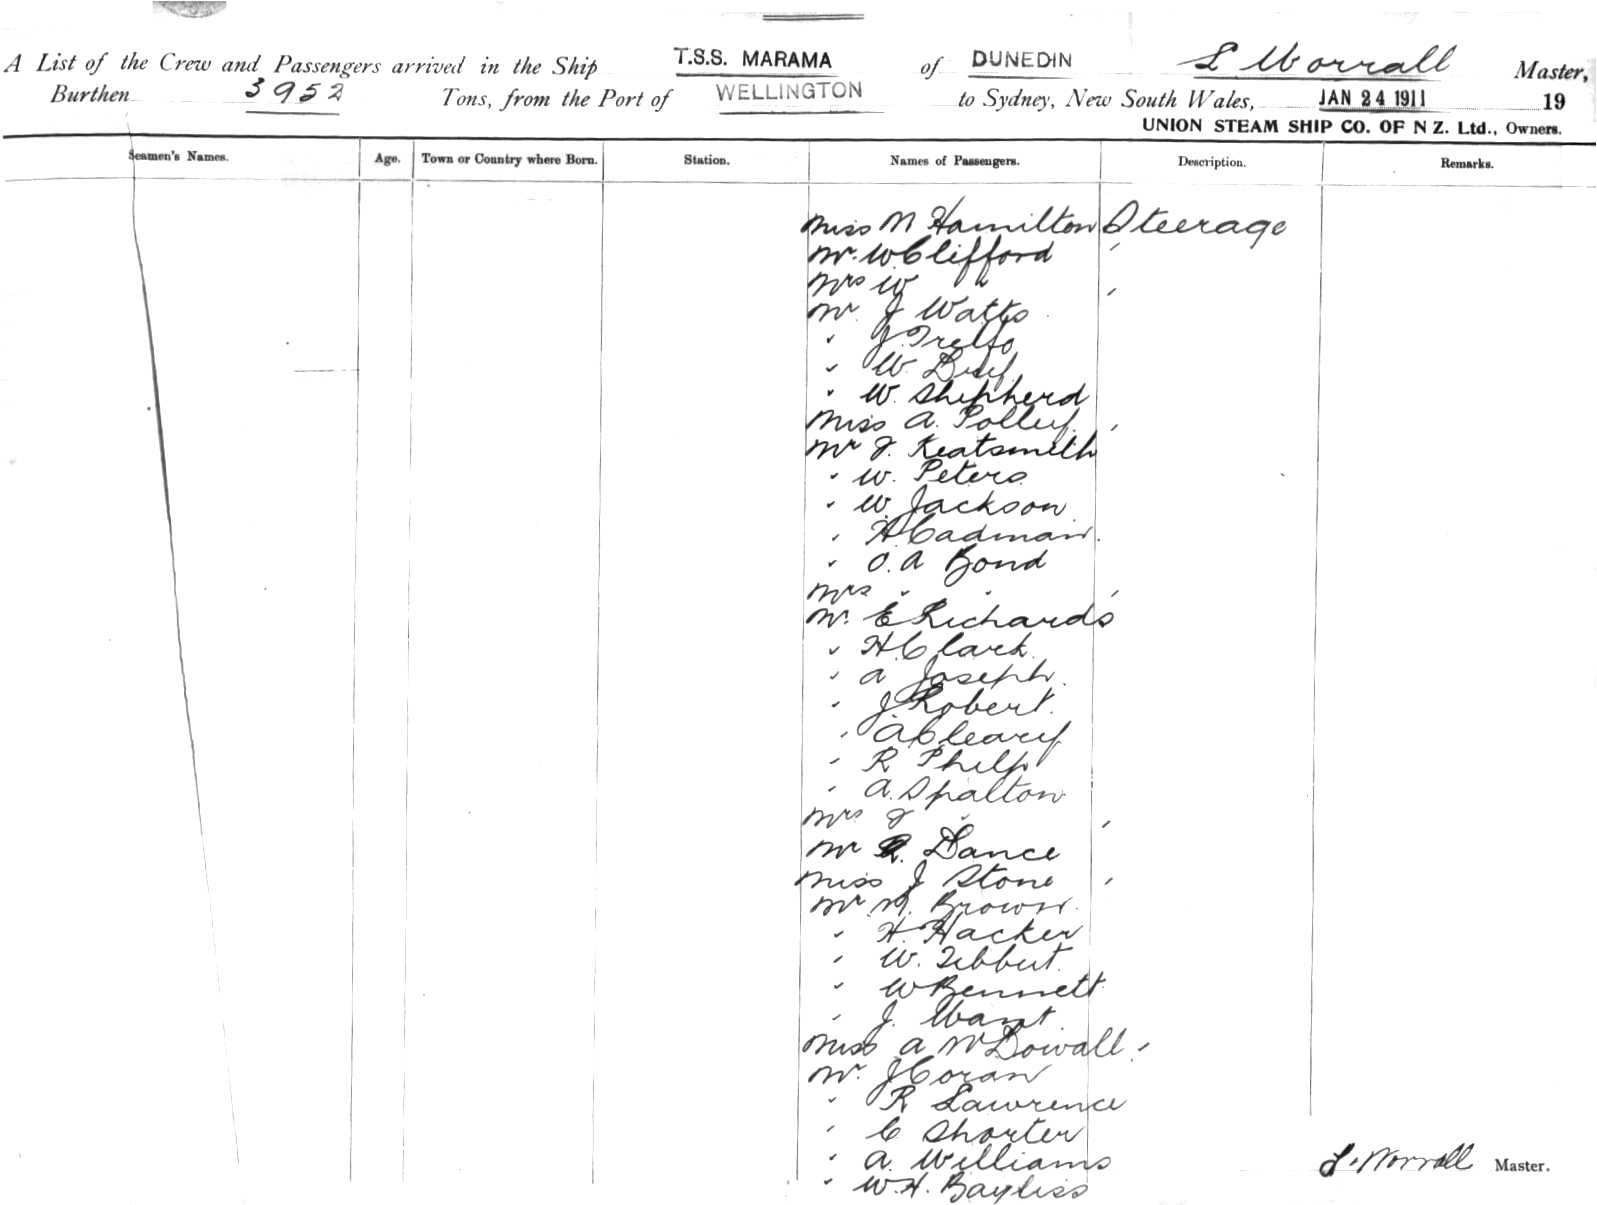 A List of the Crew and Passengers arrived in the Ship T.S.S. MARAMA of DUNEDIN L Worrall Master,
Burthen 3952 Tons, from the Port of WELLINGTON to Sydney, New South Wales, JAN 24 1911 19
UNION STEAM SHIP CO. OF N Z. Ltd., Owners.
Seamen's Names. Age. Town or Country where Born. Station. Names of Passengers. Description. Remarks.
Miss N Hamilton Steerage
Mr. W Clifford "
Mrs W " "
Mr. J Watts
" J.
" W.
" W. Shepherd
Miss A. Polley "
Mr J. Keatsmith
" W. Peters
" W. Jackson
" H. Cadman
" O. A Bond
Mrs " " "
Mr. E Richards
" H. Clark
" A Joseph
" J. Robert
" A Cleary
" R Philp
" A. Spalton
Mrs J " "
Mr R. Dance
Miss J Stone "
Mr M. Brown
" H. Hacker
" W. Tebbut
" W Bennett
" J. Want
Miss A McDowall "
Mr. J Coran
" R Lawrence
" C Shorter
" A. Williams
" W. H. Bayliss
L. Worrall Master.